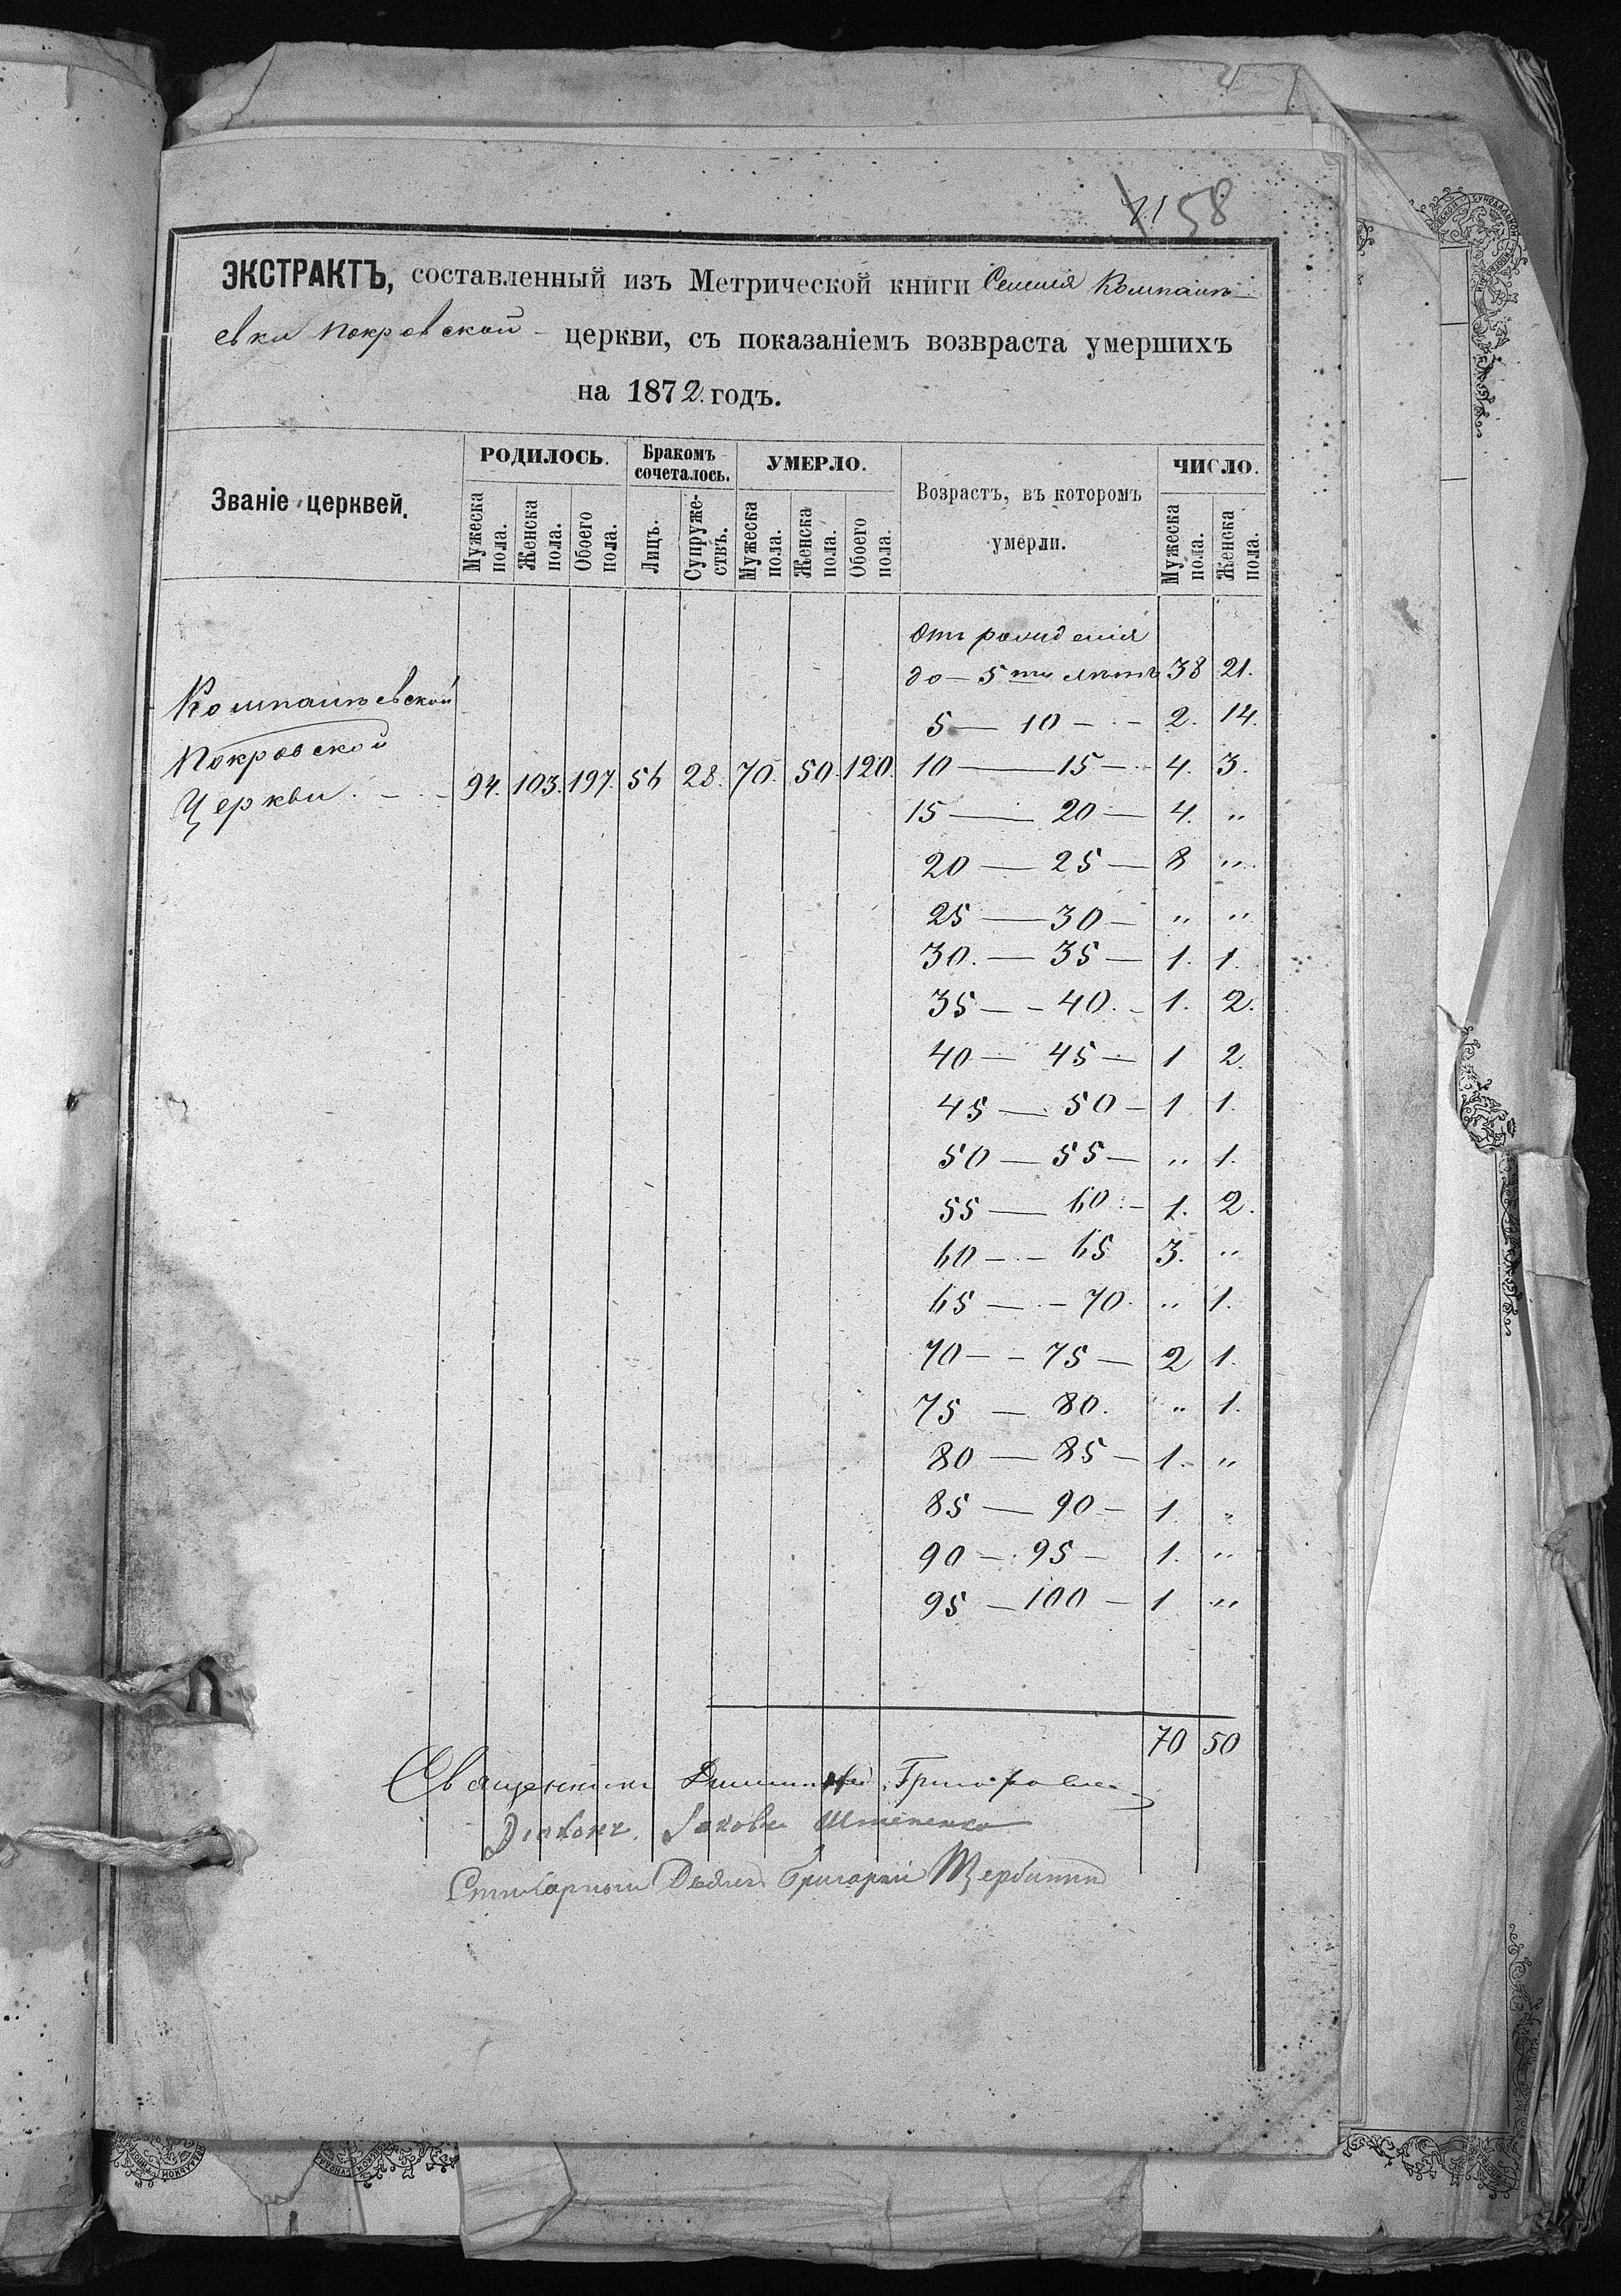 71 58
ЭКСТРАКТЪ, составленный изъ Метрической книги Селенія Компанѣ-
евки Покровской - церкви, съ показаніемъ возвраста умершихъ
на 1872. годъ.
Званіе церквей. РОДИЛОСЬ. Бракомъ сочеталось. УМЕРЛО. Возрастъ, въ которомъ умерли. ЧИСЛО.
Мужеска пола. Женска пола. Обоего пола. Лицъ. Супруже-ствъ. Мужеска пола. Женска пола. Обоего пола. Мужеска пола. Женска пола.
Отъ рожденія
до - 5ти лѣтъ 38 21.
Компанѣевской
5 — 10 - - 2. 14.
Покровской
Церкви. - - 94. 103. 197. 56 28. 70. 50. 120. 10 — 15 - - 4. 3.
15 — 20 — 4. "
20 — 25 — 8 "
25 — 30 — " "
30. — 35 — 1. 1.
35 — - 40. - 1. 2.
40 — 45 — 1 2.
45 — 50 - 1 1.
50 — 55 — " 1.
55 — 60 - 1. 2.
60 - - 65 3. "
65 — - 70. " 1.
70 - - 75 — 2 1.
75 — 80. " 1.
80 — 85 - 1. "
85 — 90 - 1. "
90 - 95 - 1. "
95 - 100 - 1 "
70 50
Священникъ Димитрій
Діаконъ Іаковъ
Стихарный Дьячекъ Григорій Щербинин